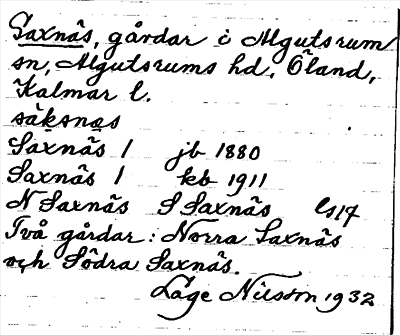 Saxnäs, gårdar i Algutsrum
sn, Algutsrums hd, Öland,
Kalmar l.
säksnas
Saxnäs 1 jb 1880
Saxnäs 1 kb 1911
N Saxnäs S Saxnäs ls 17
Två gårdar: Norra Saxnäs
och Södra Saxnäs.
Låge Nilsson 1932